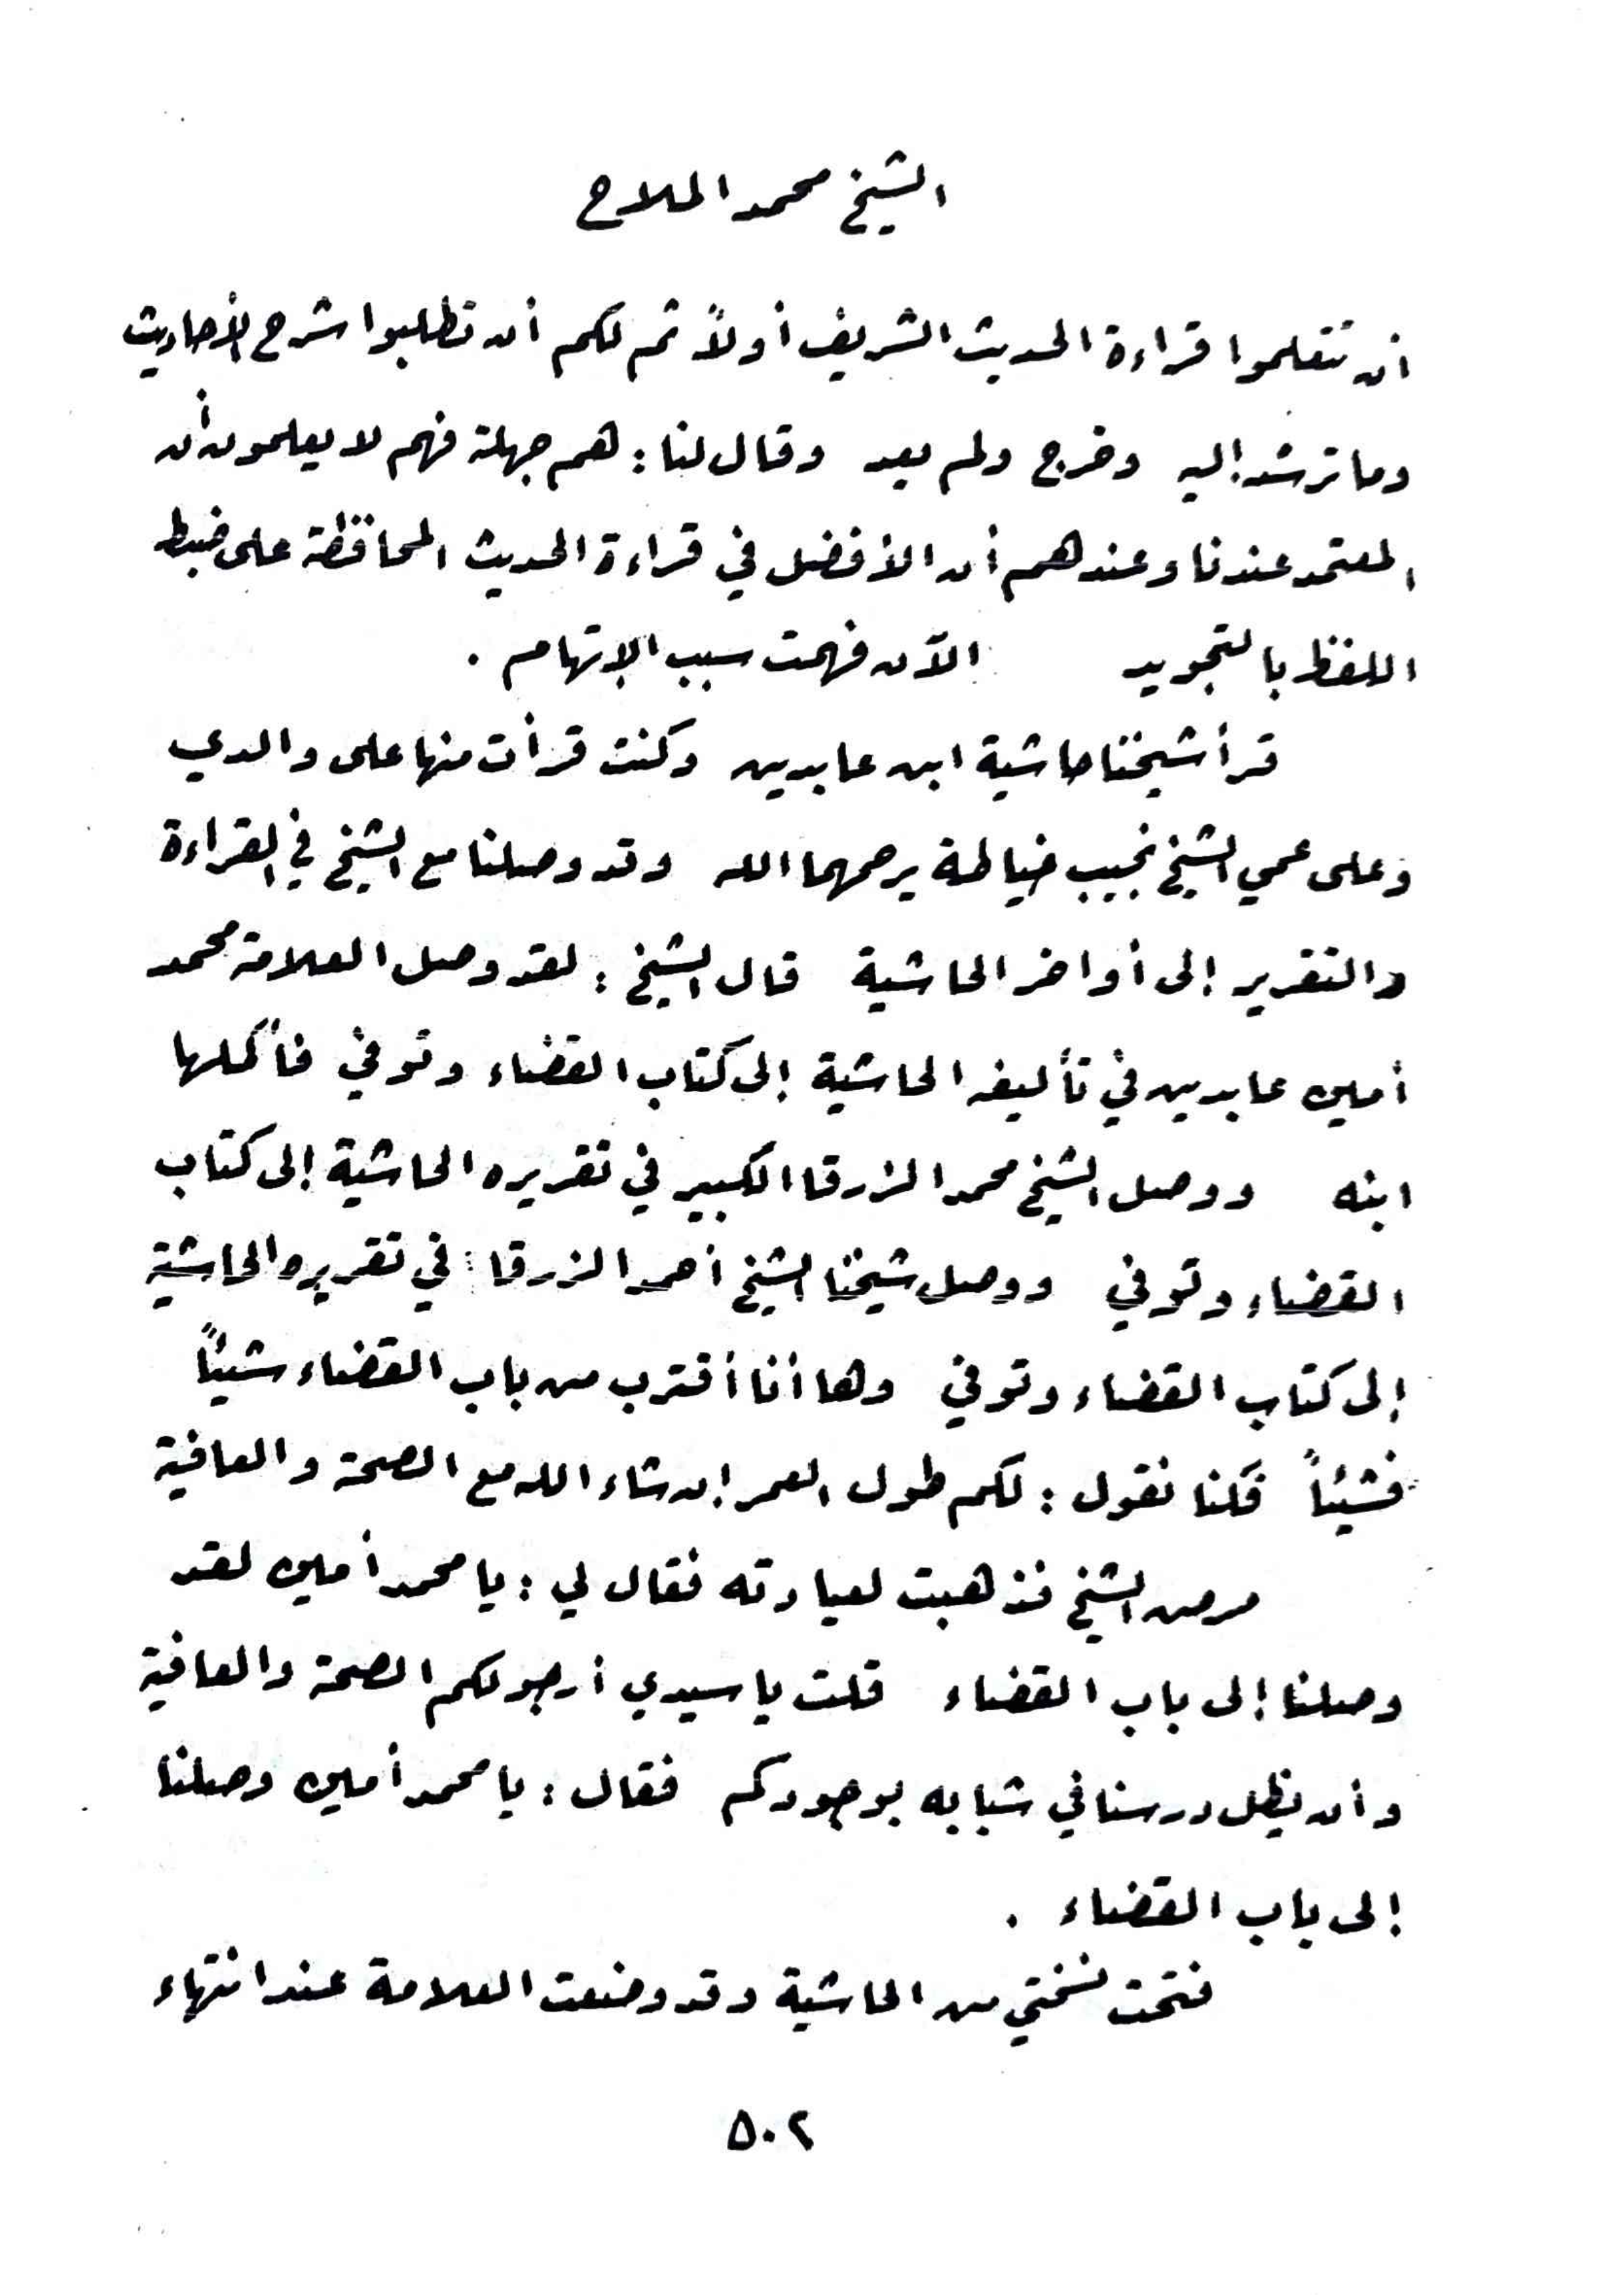 الشيخ محمد الملاح
أن تتعلموا قراءة الحديث الشريف أولاً ثم لكم أن تطلبوا شرح الأحاديث
وما ترشد إليه وخرج ولم يعد وقال لنا : هم جهلة فهم لا يعلمون أن
المعتمد عندنا وعندهم أن الأفضل في قراءة الحديث المحافظة على ضبط
اللفظ بالتجويد الآن فهمت سبب الإتهام .
قرأ شيخنا حاشية ابن عابدين وكنت قرأت منها على والدي
وعلى عمي الشيخ نجيب خياطة يرحمهما الله وقد وصلنا مع الشيخ في القراءة
والتقرير إلى أواخر الحاشية قال الشيخ : لقد وصل العلامة محمد
أمين عابدين في تأليفه الحاشية إلى كتاب القضاء وتوفي فأكملها
ابنه ووصل الشيخ محمد الزرقا الكبير في تقريره الحاشية إلى كتاب
القضاء وتوفي ووصل شيخنا الشيخ أحمد الزرقا في تقريره الحاشية
إلى كتاب القضاء وتوفي وها أنا أقترب من باب القضاء شيئاً
فشيئاً فكنا نقول : لكم طول العمر إن شاء الله مع الصحة والعافية
مرض الشيخ فذهبت لعيادته فقال لي : يا محمد أمين لقد
وصلنا إلى باب القضاء قلت يا سيدي أرجو لكم الصحة والعافية
وأن يظل درسنا في شبابه بوجودكم فقال : يا محمد أمين وصلنا
إلى باب القضاء .
فتحت نسختي من الحاشية وقد وضعت العلامة عند انتهاء
٥٠٢